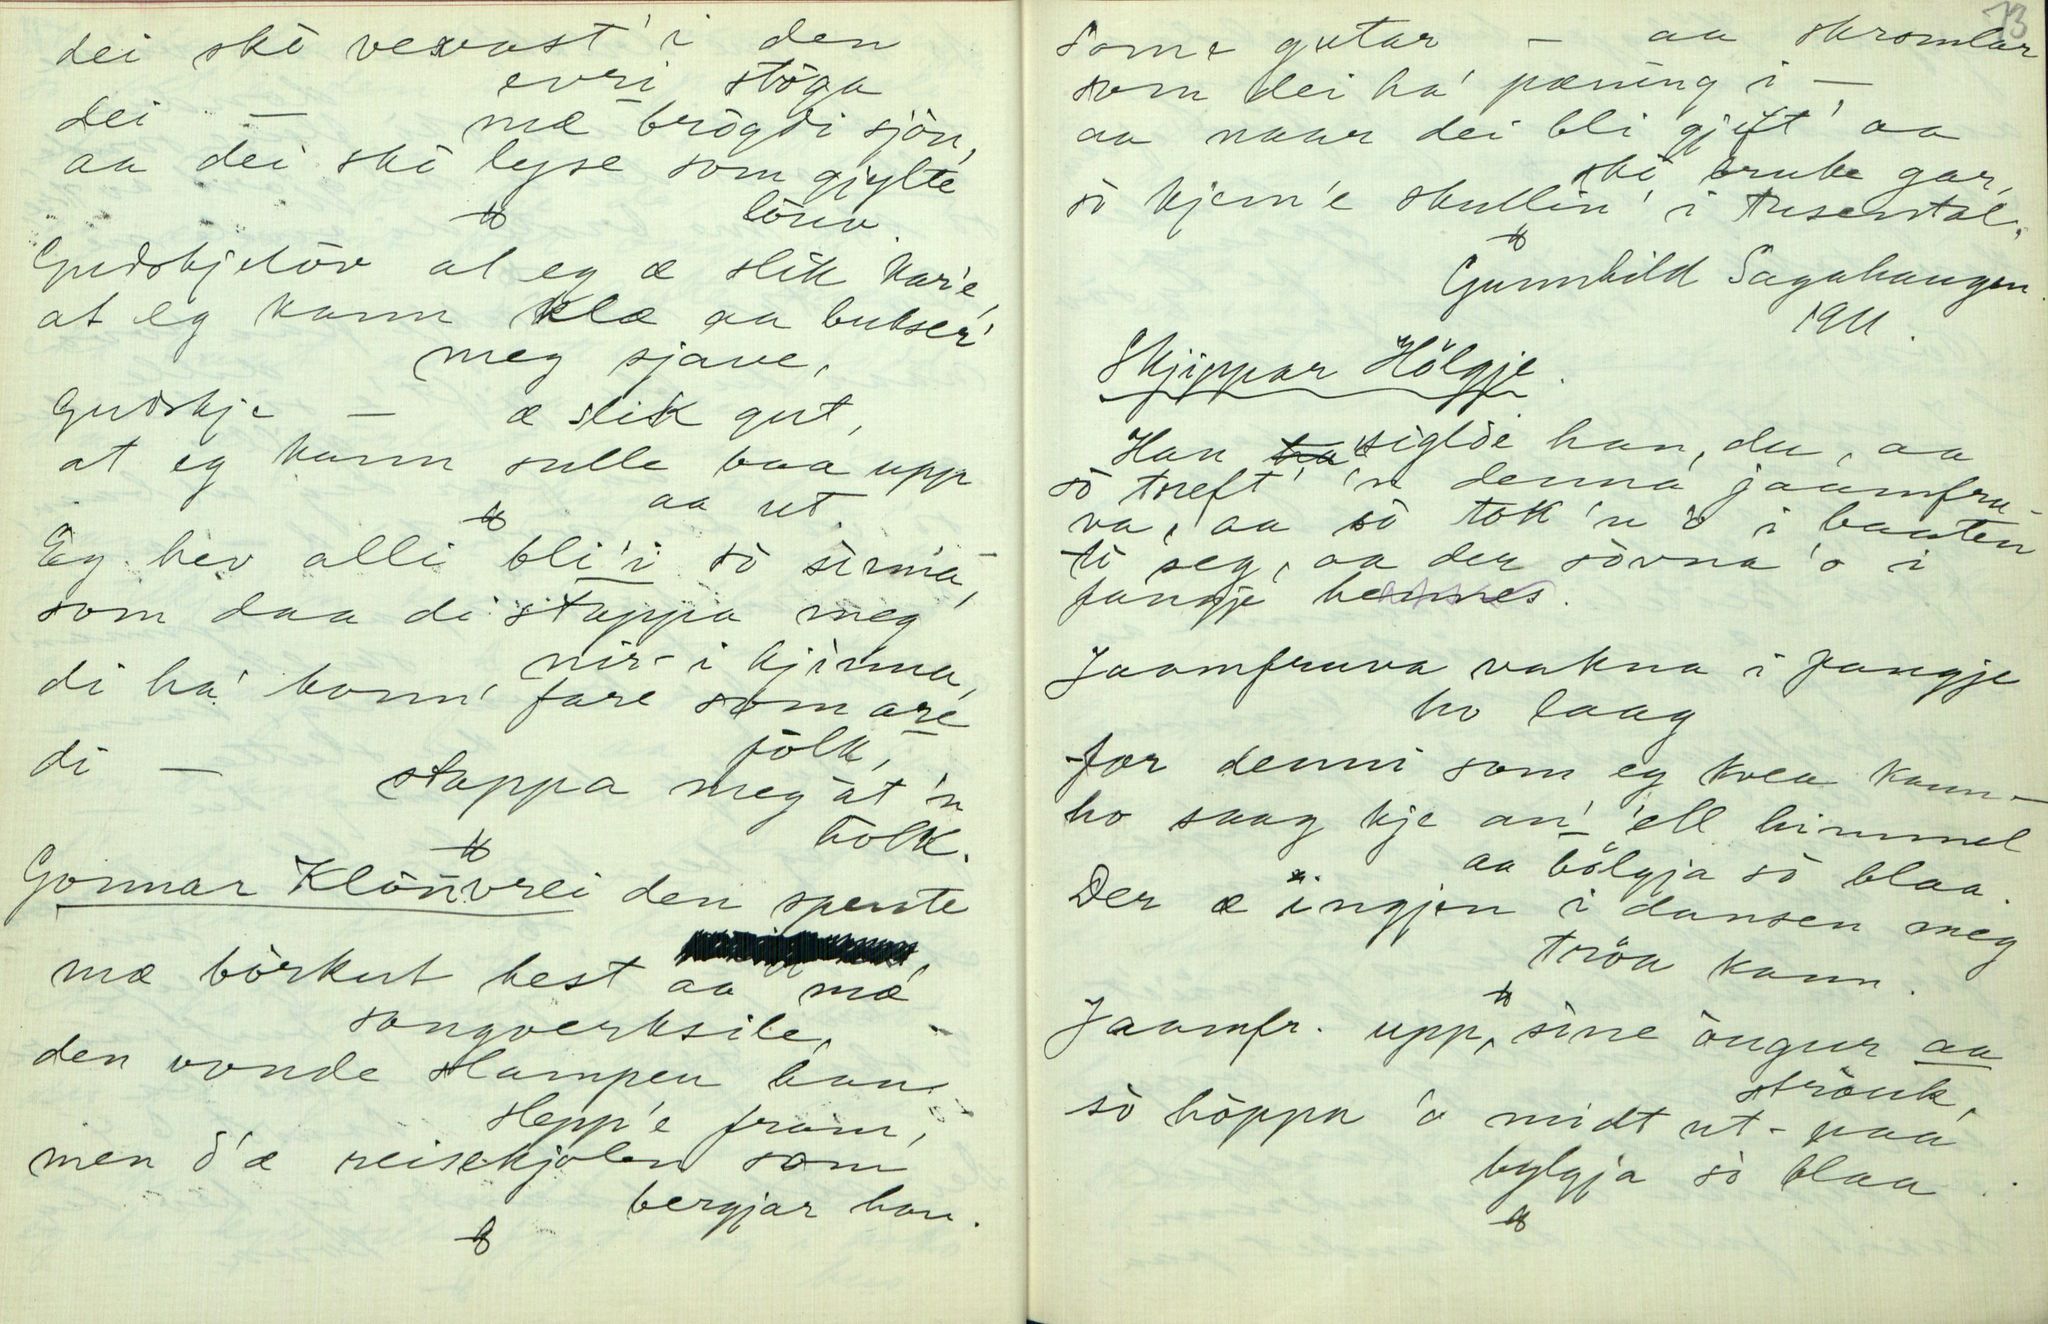 dei skò vexast'i den
evri stöga
dei — mæ brögdi sjön,
aa dei skò lyse som gjylte
löuv.
Gudskjelöv at eg æ slik kar'e,
at eg kann klæ aa bukser'
meg sjave,
Gudskje — æ slik gut,
at eg kann sulle baa upp
aa ut.
Eg hev alli bli'i sò sinna,
som daa di stappa meg
nir-i kjinna,
di ha' konn' fare som are
folk,
di — stappa meg at 'n
holk.
Gonnar Klönvrei den spente
mæ börkut hest aa mæ
songverksile,
den vonde Slampen han
slepp'e fram,
men d'æ reisekjolen som
bergjar han.
73
Some gutar — aa skromlar
som dei ha' pæning i —
aa naar dei bli gjift' aa
skò bruke gar,
sò kjem'e skullin' i tusental.
Gunnhild Sagahaugen
1911.
Skjippar Hölgje.
Han siglde han, du, aa
sò treft' 'n denna jaamfru-
va, aa sò tok 'n 'o i bauten
ti seg, aa der sòvna 'o i
fangje hennes.
Jaamfruva vakna i fangje
ho laag
for denni som eg kvea kann —
ho saag kje an' 'ell himmel
aa bölgja sò blaa.
Der æ ingjen i dansen meg
tröa kann.
Jaamfr. upp, sine öugur aa
ströuk,
sò höppa 'o midt ut-paa
bylgja sò blaa.